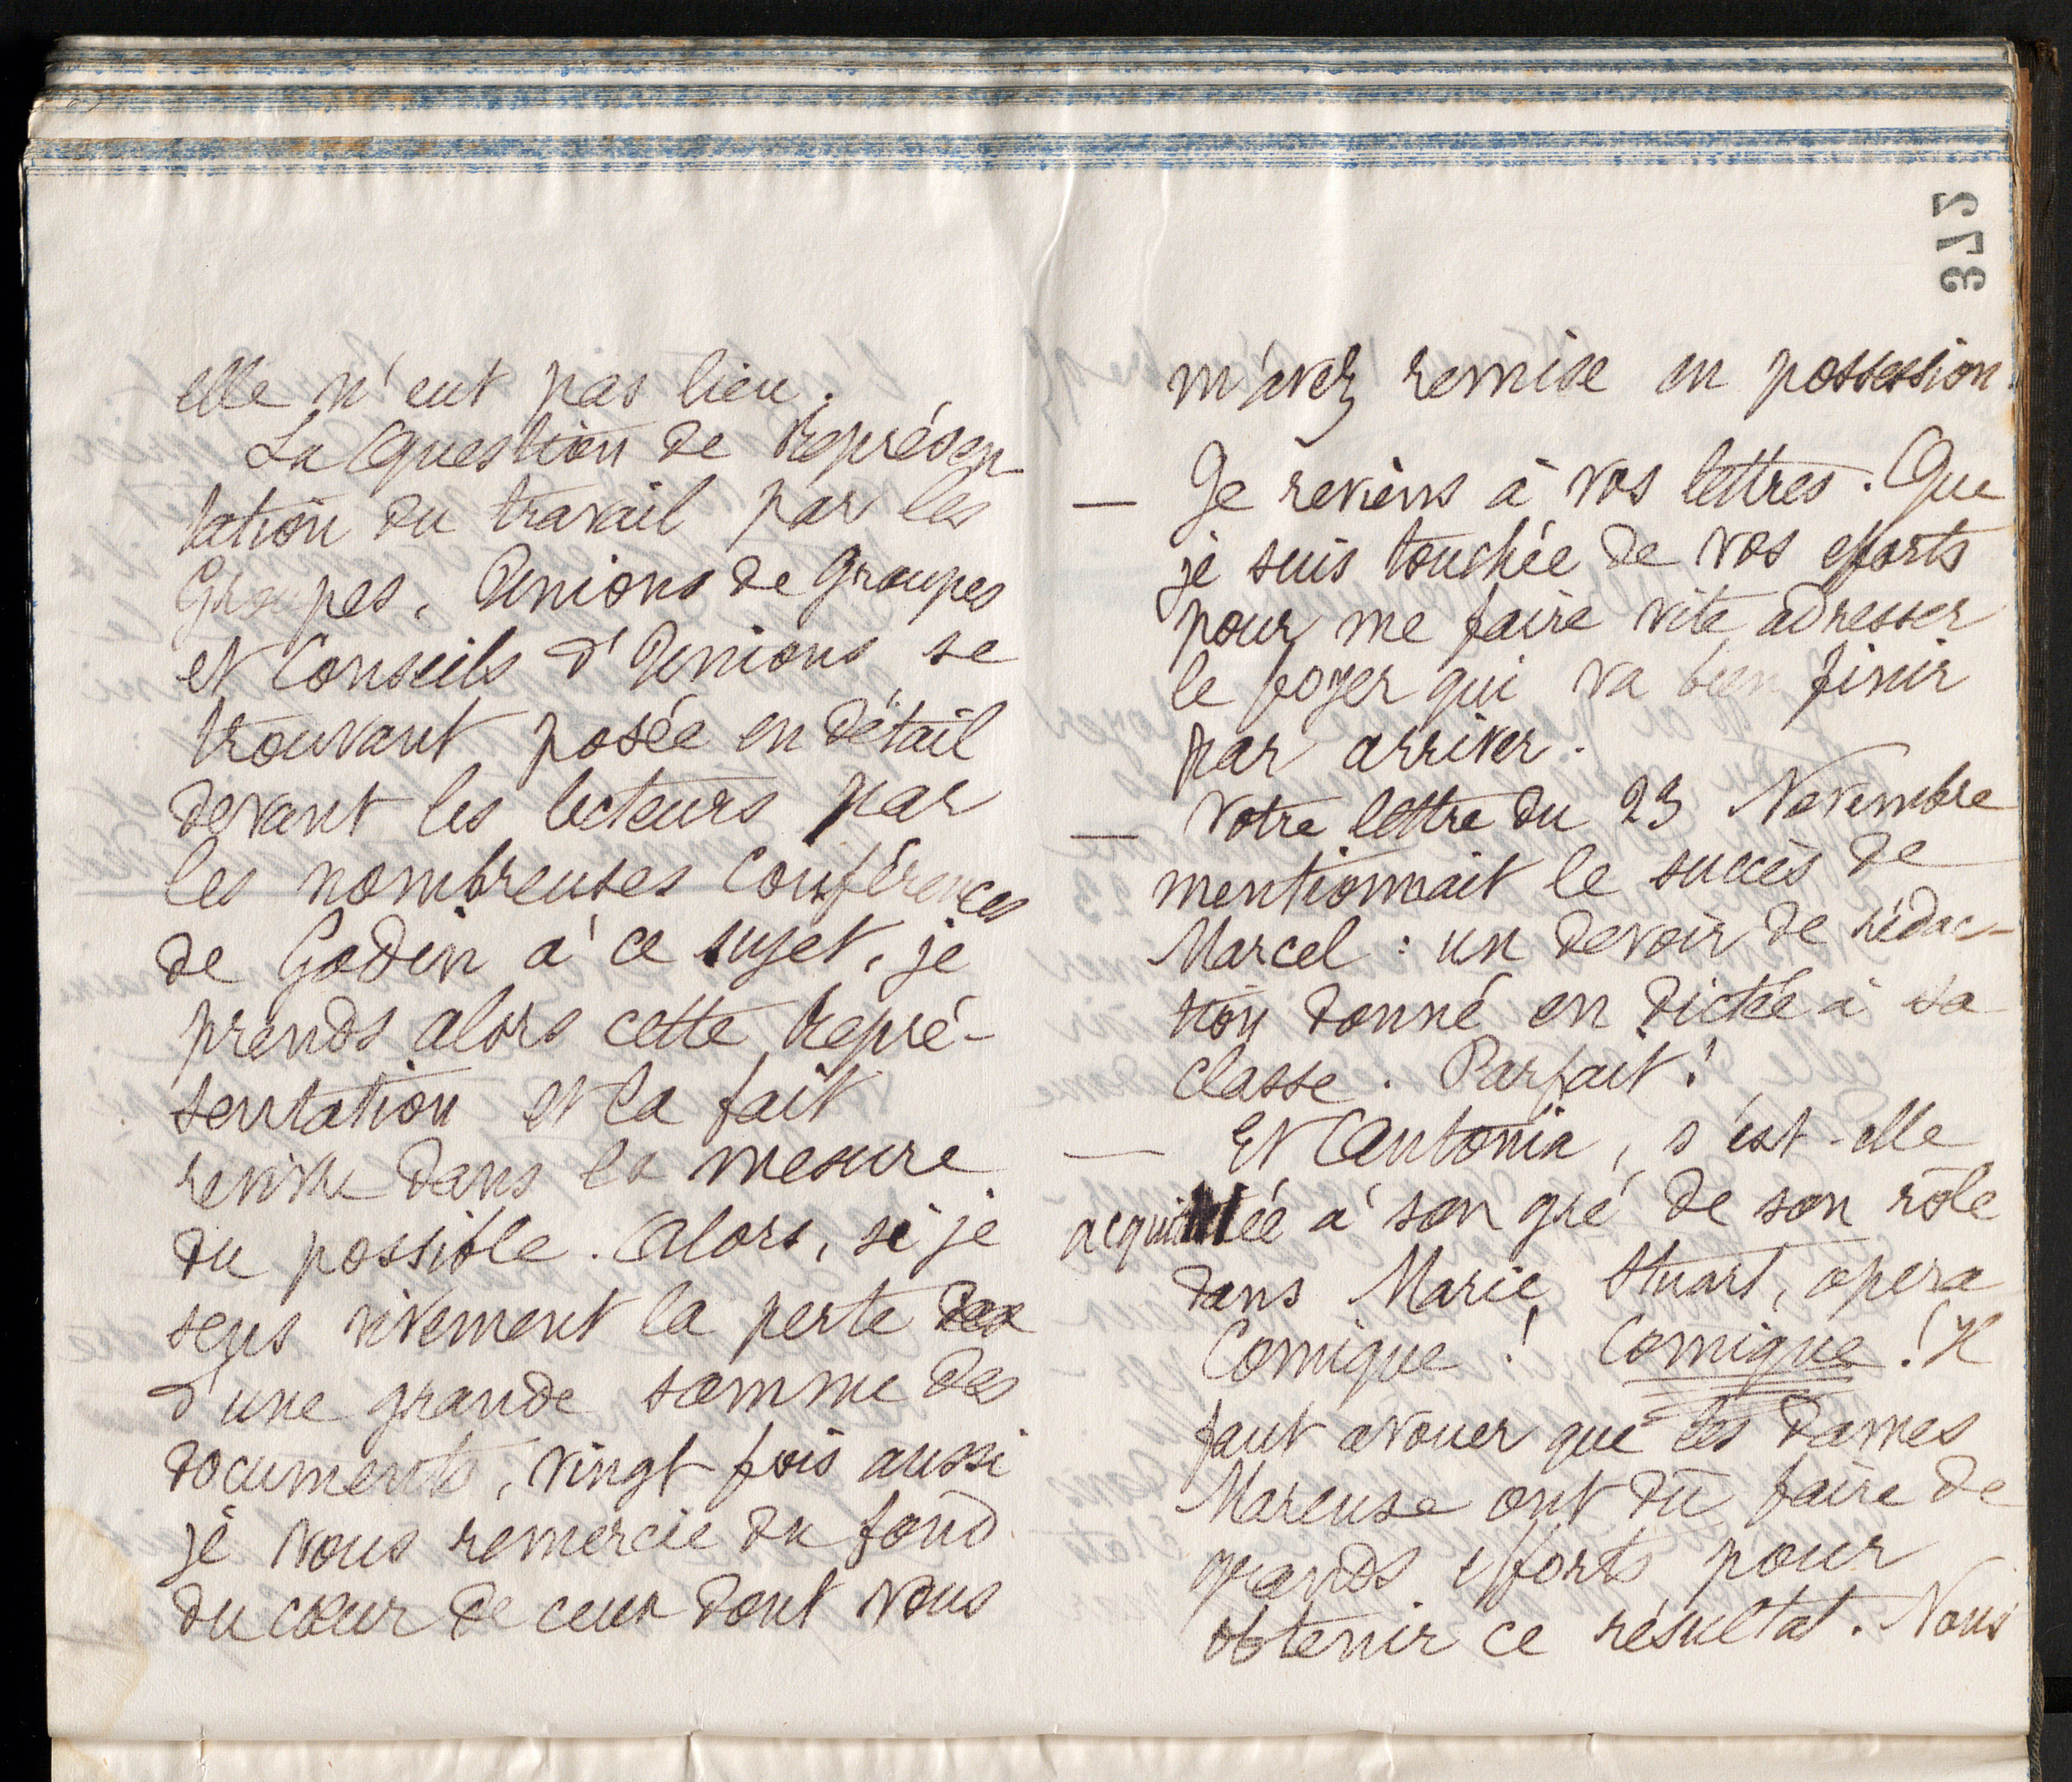 elle n'eut pas lieu.
La question de représen-
tation du travail par les
Groupes, Unions de Groupes
et Conseils d'Unions, se
trouvant posée en détail
devant les lecteurs par
les nombreuses Conférences
de Godin à ce sujet, je
prends alors cette repré-
sentation et la fait
revivre dans la mesure
du possible. Alors, si je
sens vivement la perte
d'une grande somme des
documents, vingt fois aussi
je vous remercie du fond
du cœur de ceux dont vous
377
m'avez remise en possession.
— Je reviens à vos lettres. Que
je suis touchée de vos efforts
pour me faire vite adresser
le foyer qui va bien finir
par arriver.
— Votre lettre du 23 Novembre
mentionnait le succès de
Marcel : un devoir de rédac-
tion donné en dictée à sa
classe. Parfait !
— Et Antonia, s'est-elle
acquittée à son gré de son rôle
dans Marie Stuart, opera
Comique ! Comique ! Il
faut avouer que les dames
Mareuse ont dû faire de
grands efforts pour
obtenir ce résultat. Nous